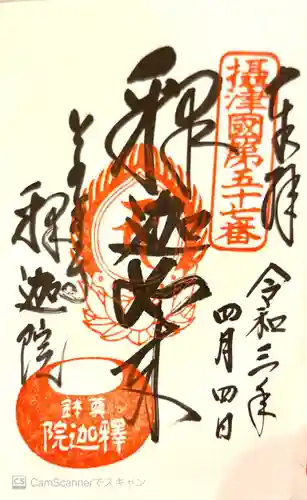 奉拝
摂津國第五十七番
令和三年
四月四日
釋迦如来
釋迦院
尊鉢
釋迦院
CS CamScannerでスキャン